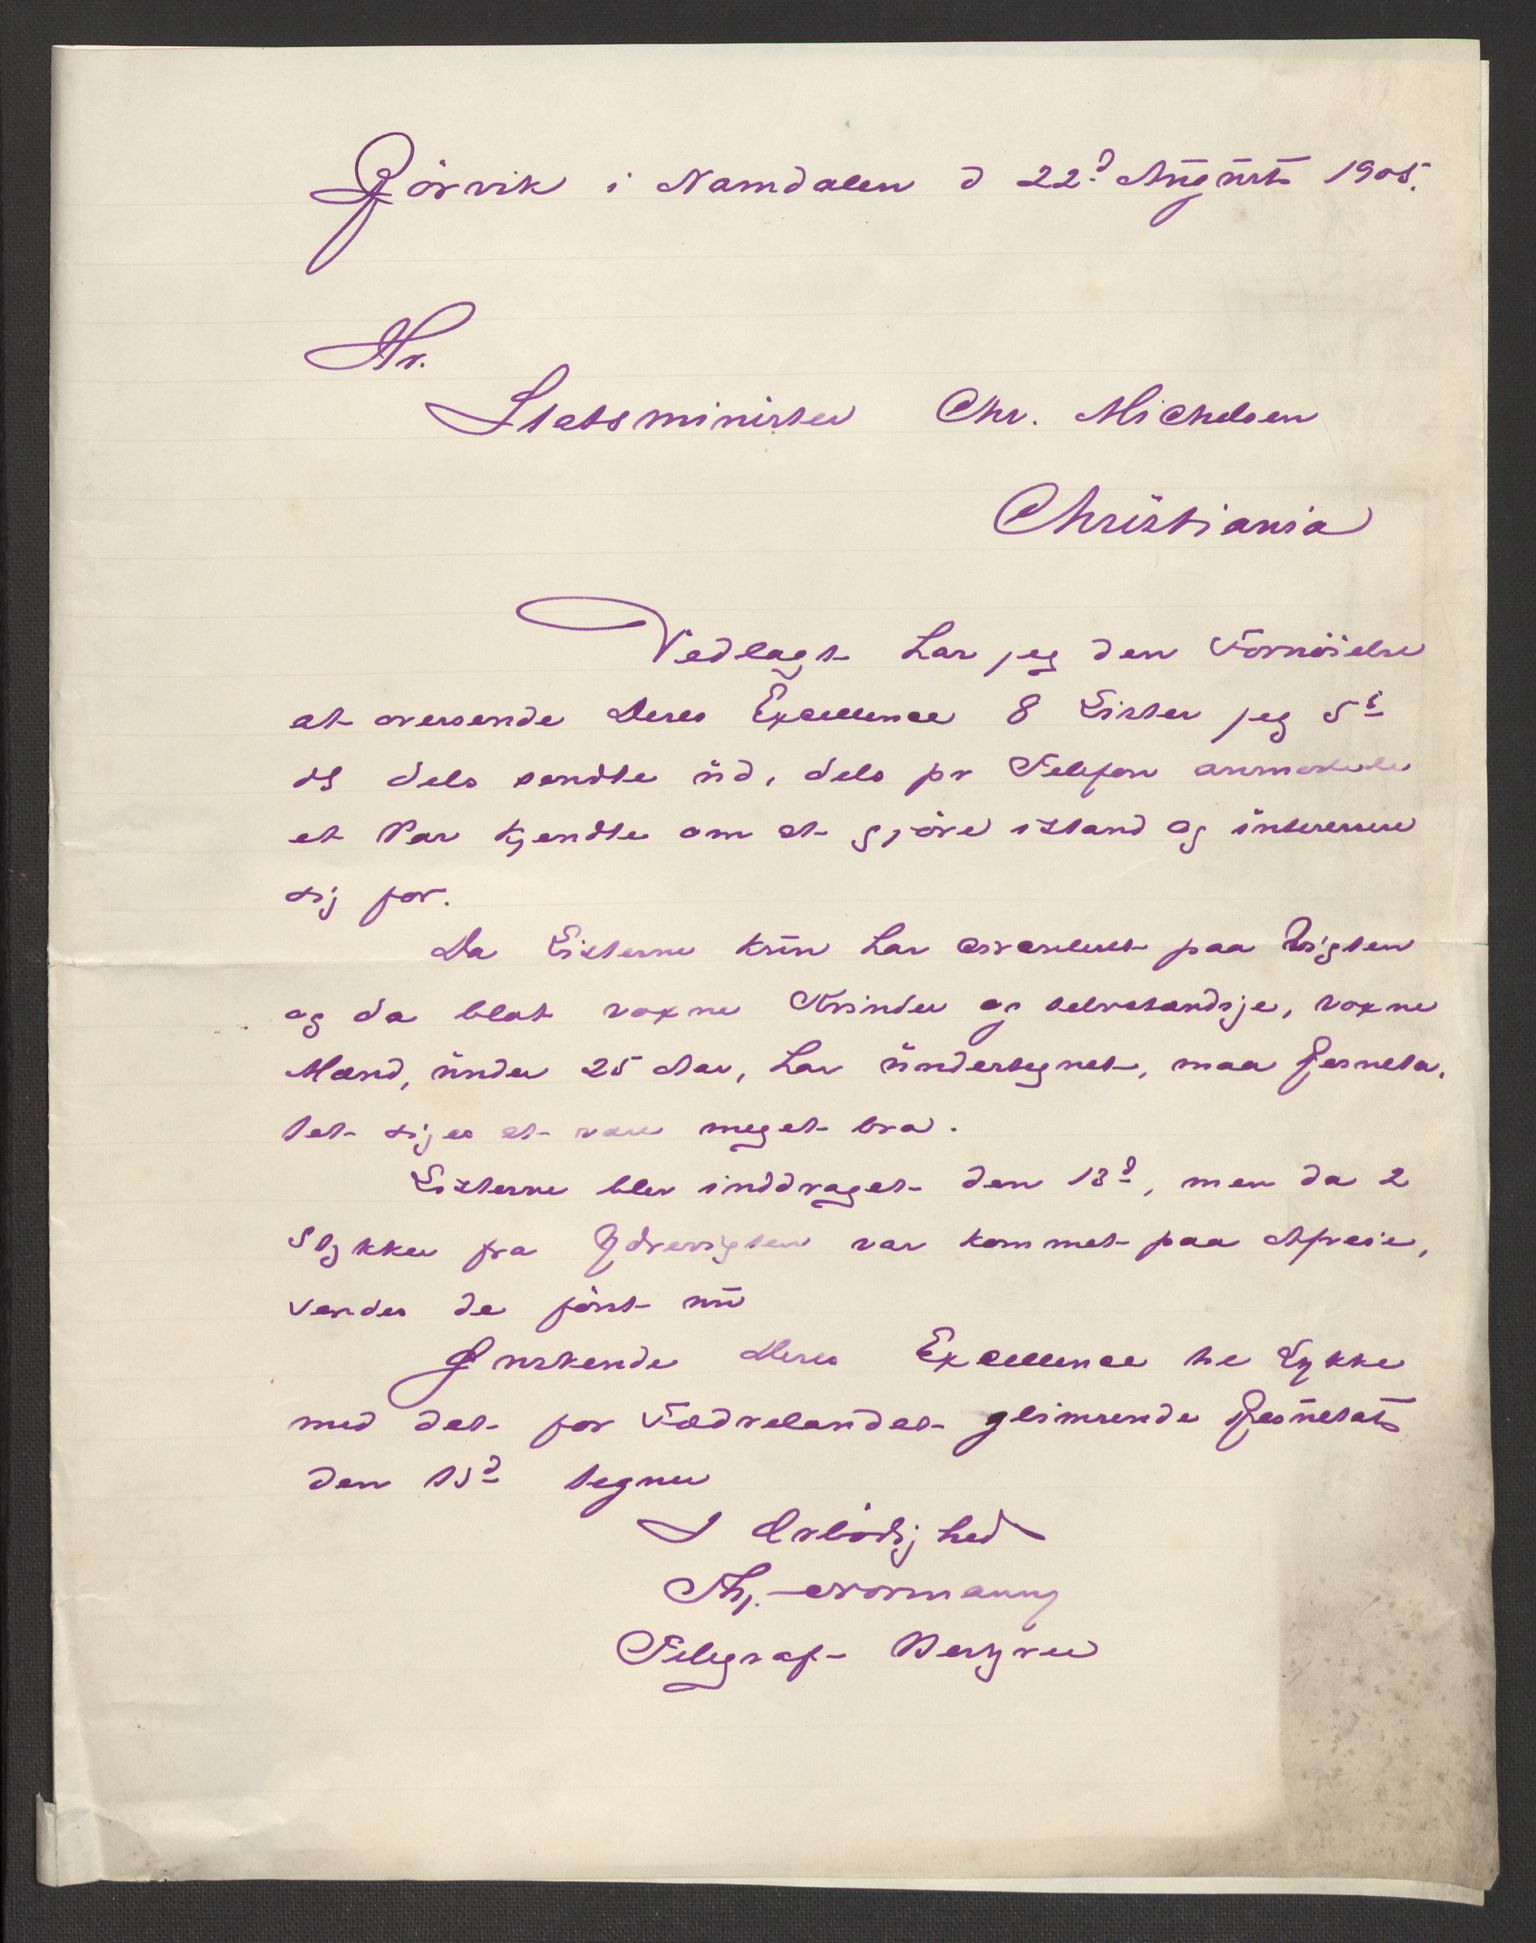 Rörvik i Namdalen d 22d August 1905.
Hr.
Statsminister Chr. Michelsen
Christiania
Vedlagt har jeg den Fornöielse
at oversende Deres Excellence 8 Lister jeg 5te
ds dels sendte ud, dels pr Telefon anmodede
et Par kjendte om at gjöre istand og interessere
sig for.
Da Listerne kun har circuleret paa Vigten
og da blot voxne Kvinder og selvstændige, voxne
Mænd, under 25 Aar, har undertegnet, maa Resulta-
tet siges at være meget bra.
Listerne blev inddraget den 13d, men da 2
Stykker fra Ydrevigten var kommet paa Afveie,
sendes de först nu
Önskende Deres Excellence til Lykke
med det for Fædrelandet glimrende Resultat
den 13d tegner
I Ærbödighed
Th. Normann
Telegraf-Bestyrer